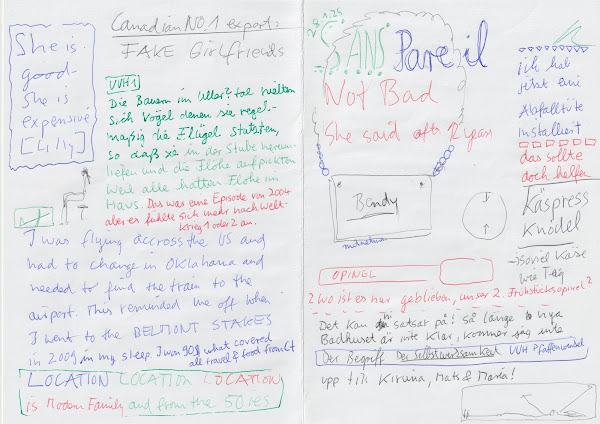 Canadian No.1 export:
FAKE Girlfriends
She is
good-
She is
expensive
[4/13]
VVH1
Die Bauern im Ultental hielten
sich Vögel denen sie regel-
mäßig die Flügel stutzten,
so daß sie in der Stube herum-
liefen und die Flöhe aufpickten
weil alle hatten Flöhe im
Haus. Das was eine Episode von 2004
aber es fühlte sich mehr nach Welt-
krieg 1 oder 2 an.
I was flying accross the US and
had to change in Oklahama and
needed to find the train to the
airport. This reminded me off when
I went to the BELMONT STAKES
in 2009 in my sleep. I won 90$ what covered
all travel & food from Ct
LOCATION LOCATION LOCATION
is Modern Family and from the 50ies
28.1.25
SANS Pareil
Not Bad
She said after 12 years
Bandy
OPINEL
? Wo ist es nur geblieben, unser 2. Frühstücksopinel?
Det kan satsar på! så länge nya
Badhuset är inte klar, kommer jag inte
Der Begriff der Selbstwirksamkeit VVH Pfaffenwinkel
upp till Kiruna, Mats & Maria!
ich hab
jetzt eine
Abfalltüte
installiert
das sollte
doch helfen
Käspress
Knödel
soviel Käse
wie Teig